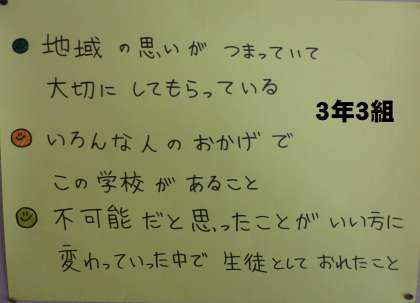 地域の思いがつまっていて
大切にしてもらっている
3年3組
いろんな人のおかげで
この学校があること
不可能だと思ったことがいい方に
変わっていった中で生徒としておれたこと